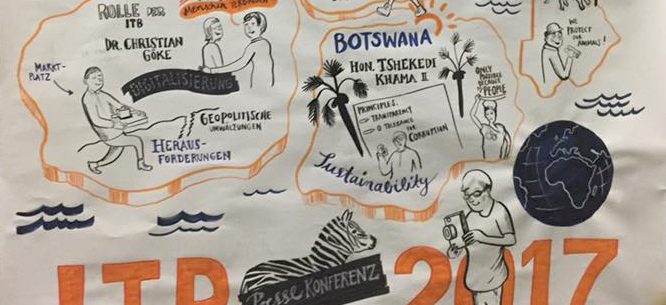 MENSCHEN
ROLLE DER
ITB
DR. CHRISTIAN
GÖKE
MARKT-
PLATZ
DIGITALISIERUNG
GEOPOLITISCHE
UMWÄLZUNGEN
HERAUS-
FORDERUNGEN
BOTSWANA
HON. TSHEKEDI
KHAMA II
PRINCIPLES:
- TRANSPARENCY
- 0 TOLERANCE
FOR
CORRUPTION
ONLY
POSSIBLE
BECAUSE
OF PEOPLE
Sustainability
WE
PROTECT
OUR
ANIMALS!
ITB 2017
Presse KONFERENZ